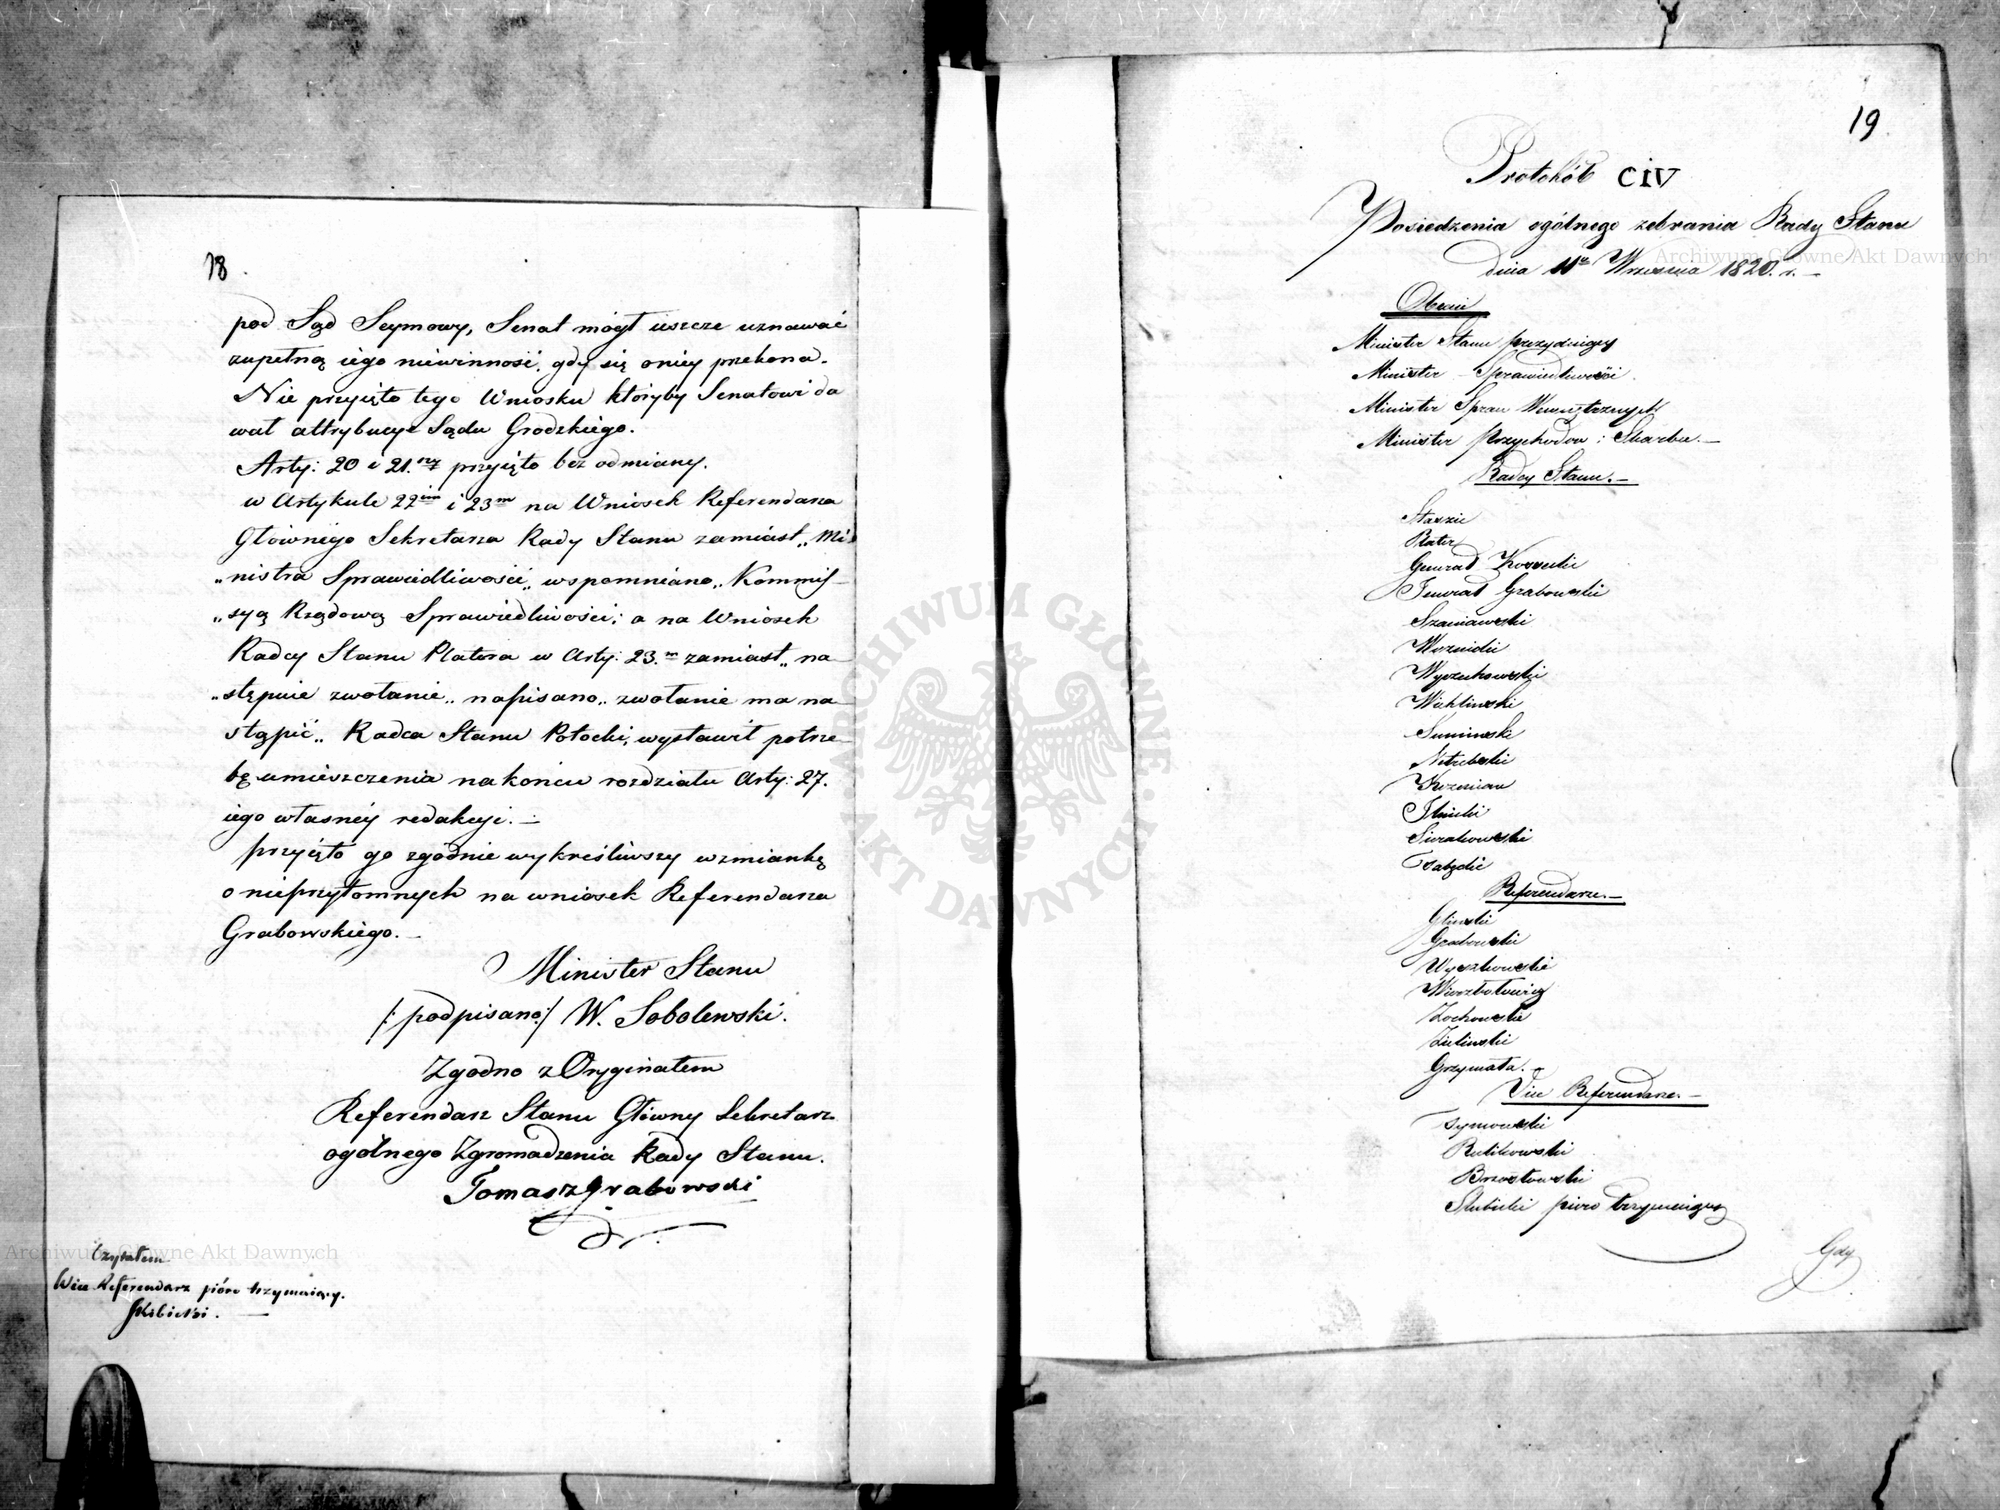 18
pod Sąd Seymowy, Senat mógł ieszcze uznawać
zupełną iego niewinność, gdy się oniey przekona.
Nie przyięto tego Wniosku któryby Senatowi da
wał attrybucye Sądu Grodzkiego.
Arty: 20 i 21.ny przyięto bez odmiany.
w Artykule 22im i 23m na Wniosek Referendarza
Głównego Sekretarza Rady Stanu zamiast „Mi
„nistra Sprawiedliwości„ wspomniano „Kommis-
„syą Rządową Sprawiedliwości; a na Wniosek
Radcy Stanu Platera w Arty: 23.m zamiast „na-
„stępuie zwołanie„ napisano„ zwołanie ma na-
stąpić„ Radca Stanu Potocki, wystawił potrze-
bę umieszczenia na końcu rozdziału Arty: 27.
iego własnéy redakcyi. –
przyięto go zgodnie wykreśliwszy wzmiankę
o nieprzytomnych na wniosek Referendarza
Grabowskiego. –
Minister Stanu
/:podpisano:/ W. Sobolewski.
Zgodno z Oryginałem
Referendarz Stanu Główny Sekretarz
ogólnego Zgromadzenia Rady Stanu.
Tomasz Grabowski
Czytałem
Wice Referendarz pióro trzymaiący.
Skibicki. —
19
Protokół CIV
Posiedzenia ogólnego zebrania Rady Stanu
dnia 11go Września 1820. r. –
Obecni
Minister Stanu prezyduiący
Minister Sprawiedliwości.
Minister Spraw Wewnętrznych
Minister Przychodów i Skarbu. –
Radcy Stanu. –
Staszic
Plater
Generał Kossecki
Jenerał Grabowski
Szaniawski
Woznicki
Wyczechowski
Wichliński
Sumiński
Kozmian
Sierakowski
Referendarze. –
Gliński
Grabowski
Wyczkowski
Żochowski
Zieliński
Grzymała. –
Vice Referendarze. –
Tymowski
Brzostowski
Skibicki pióro trzymaiący
Gdy
Archiwum Główne Akt Dawnych
Archiwum Główne Akt Dawnych
ARCHIWUM GŁÓWNE AKT DAWNYCH